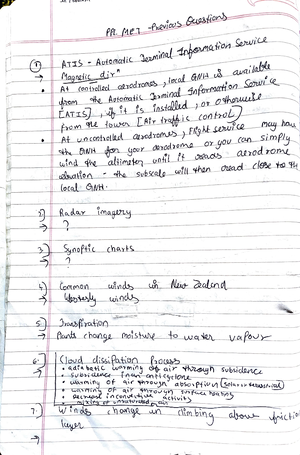 PPL MET - Previous Questions
1) ATIS - Automatic Terminal Information Service
→ Magnetic dirⁿ
• At controlled aerodromes, local QNH is available
from the Automatic Terminal Information Service
[ATIS], if it is installed, or otherwise
from the tower [Air traffic control]
• At uncontrolled aerodromes, Flight service may have
the QNH for your aerodrome or you can simply
wind the altimeter until it reads aerodrome
elevation - the subscale will then read close to the
local QNH.
2) Radar imagery
→ ?
3) Synoptic charts
→ ?
4) Common winds in New Zealand
→ Westerly winds
5) Transpiration
→ Plants change moisture to water vapour
6. Cloud dissipation process
• adiabatic warming of air through subsidence
• subsidence in an anticyclone
• warming of air through absorption (solar or terrestrial)
• warming of air through surface heating
• decrease in convective activity
• mixing of unsaturated air
7. Winds change on climbing above friction
layer
→